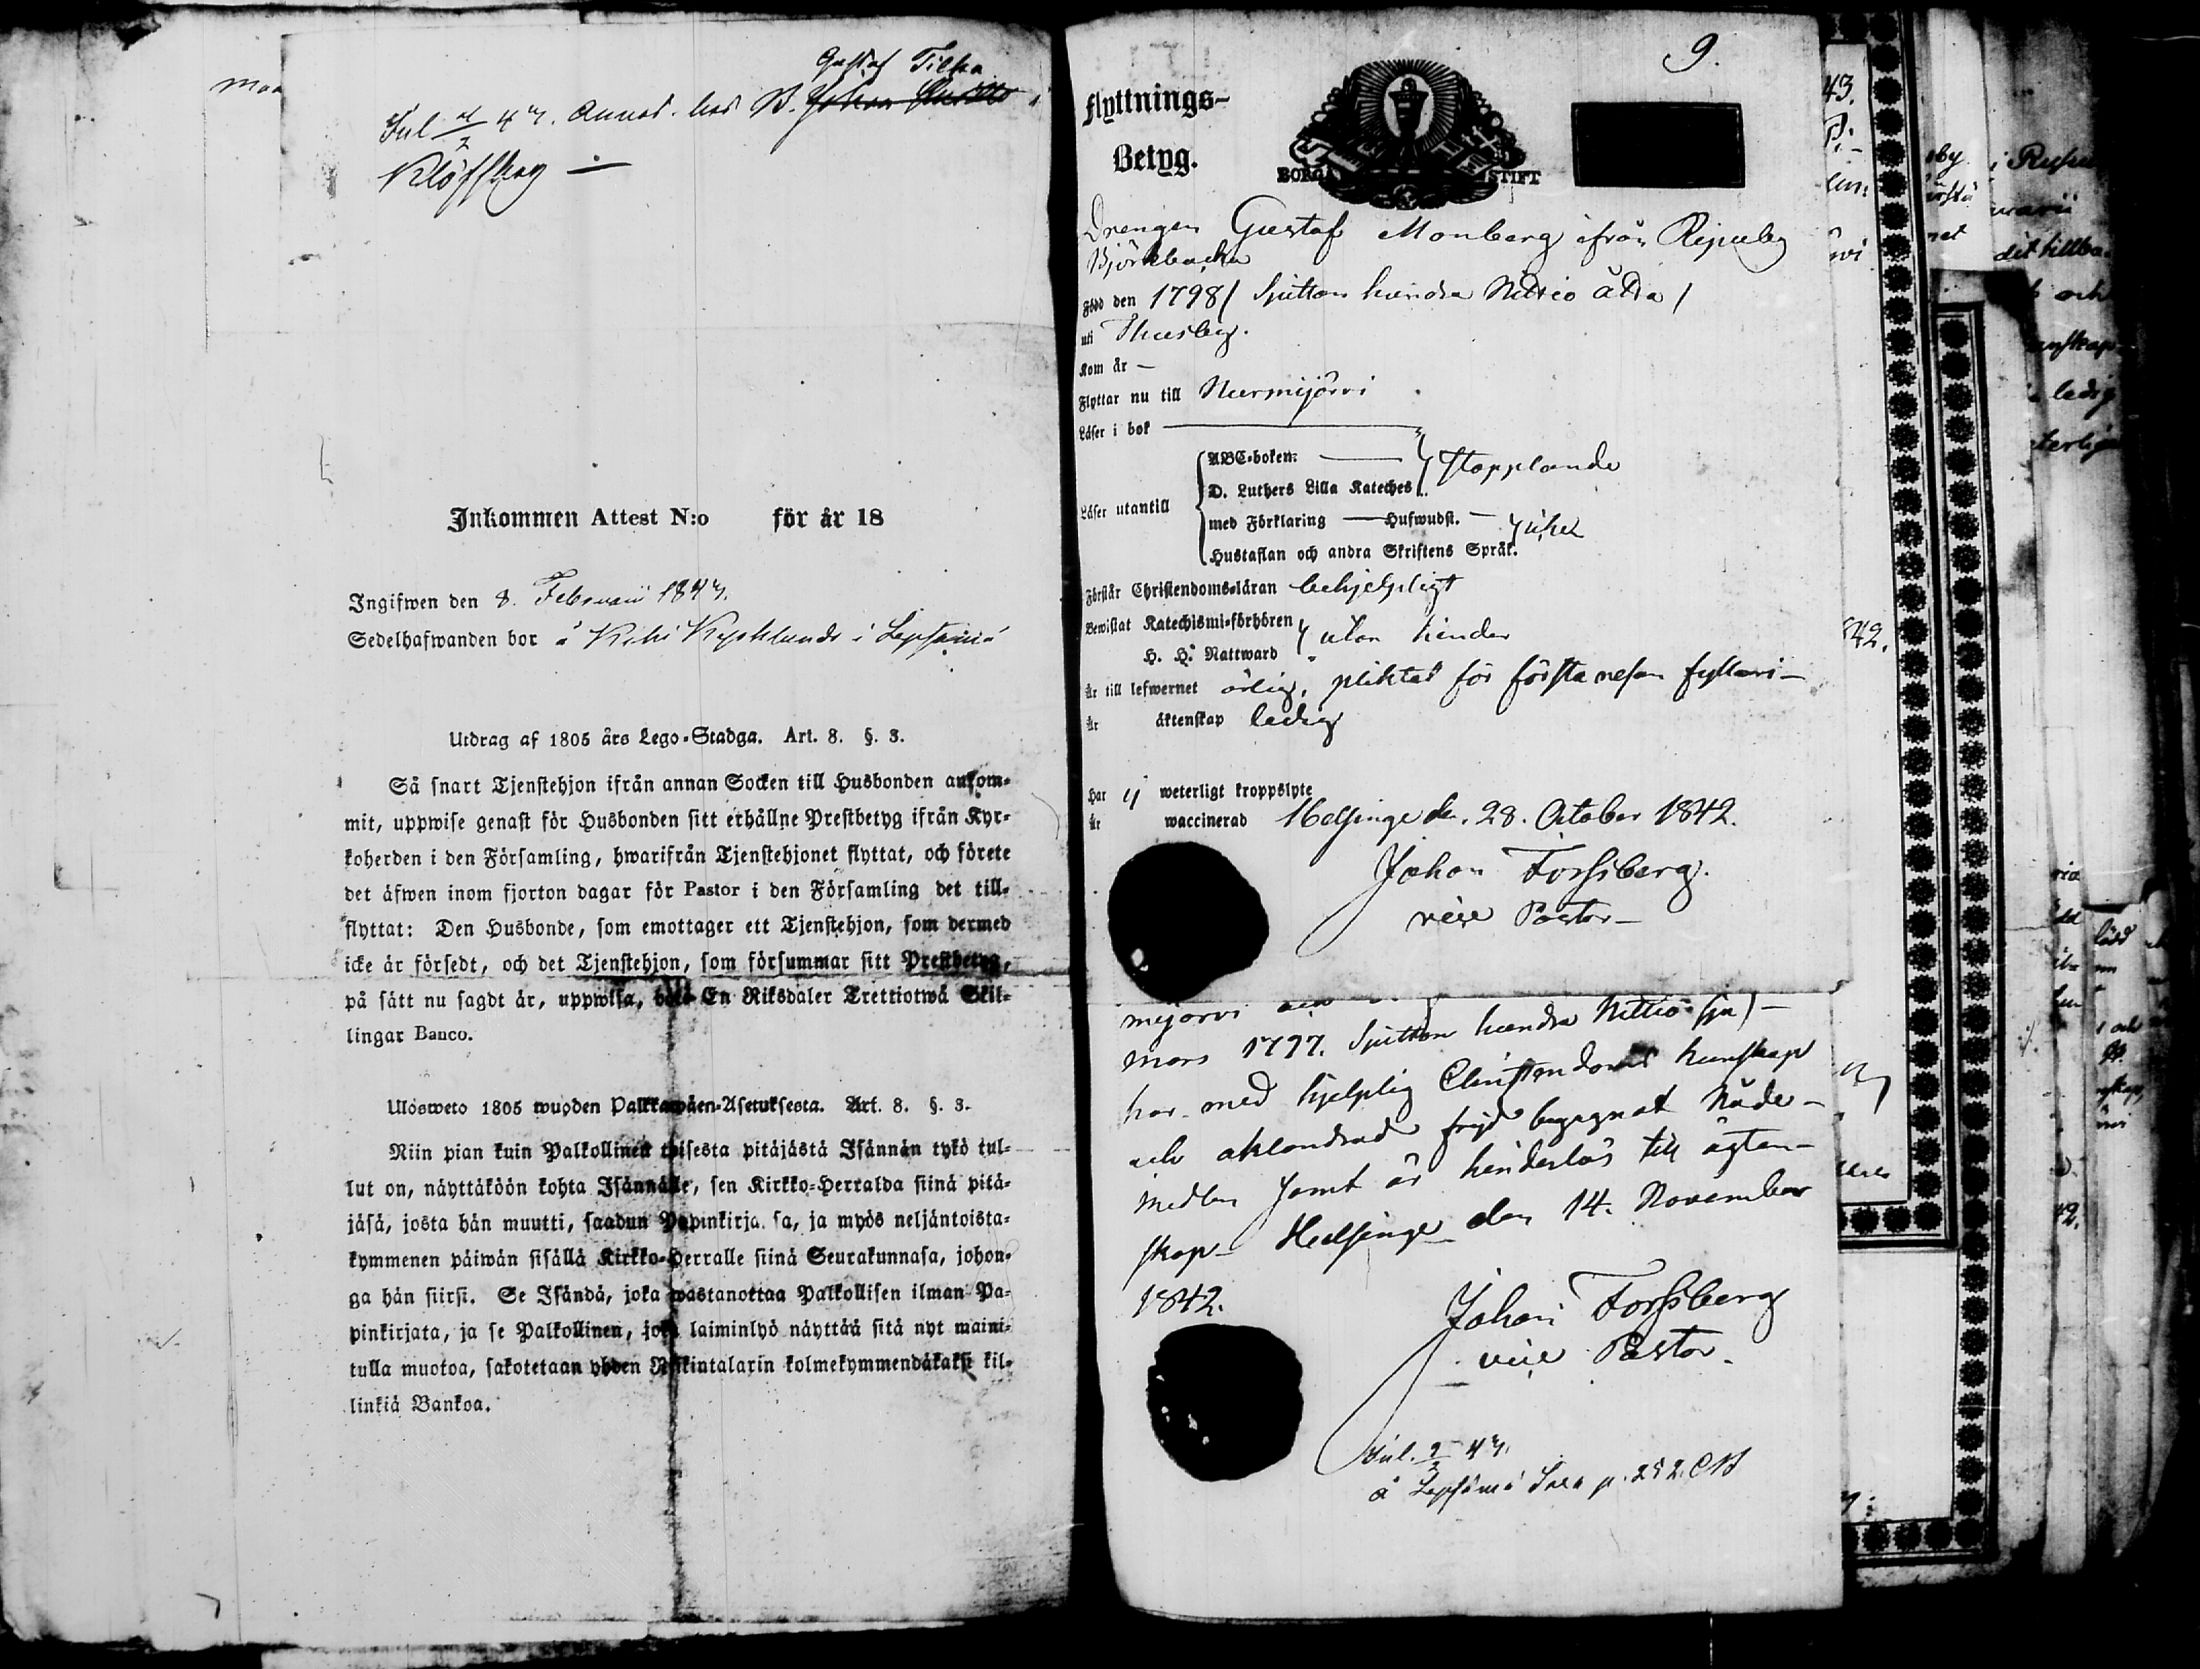 Gustaf Tilka
Inl 2/2 43. Annot. hos B. Johan
Klöfskog —
Inkommen Attest N:o för år 18
Ingifwen den 8. Februarii 1843.
Sedelhafwanden bor å Kihi Kycklunds i Lepsämä
Utdrag af 1805 års Lego-Stadga. Art. 8. §. 3.
Så snart Tjenstehjon ifrån annan Socken till Husbonden ankom-
mit, uppwise genast för Husbonden sitt erhållne Prestbetyg ifrån Kyr-
koherden i den Församling, hwarifrån Tjenstehjonet flyttat, och förete
det äfwen inom fjorton dagar för Pastor i den Församling det till-
flyttat: Den Husbonde, som emottager ett Tjenstehjon, som dermed
icke är försedt, och det Tjenstehjon, som försummar sitt Prestbetyg,
på sätt nu sagdt är, uppwisa, böte En Riksdaler Trettiotwå Skil-
lingar Banco.
Ulosweto 1805 wuoden Palkkawäen-Asetuksesta. Art. 8. §. 3.
Niin pian kuin Palkollinen toisesta pitäjästä Isännän tykö tul-
lut on, näyttäköön kohta Isännälle, sen Kirkko-Herralda siinä pitä-
jäsä, josta hän muutti, saadun Papinkirja sa, ja myös neljäntoista-
kymmenen päiwän sisällä Kirkko-Herralle siinä Seurakunnasa, johon-
ga hän siirsi. Se Isändä, joka wastanottaa Palkollisen ilman Pa-
pinkirjata, ja se Palkollinen, joka laiminlyö näyttää sitä nyt maini-
tulla muotoa, sakotetaan yhden Riikintalarin kolmekymmendäkaksi kil-
linkiä Bankoa.
9.
Flyttnings-
Betyg.
BORGÅ STIFT
Drengen Gustaf Monberg ifrån Ripuby
Björkbacka
Född den 1798 / Sjutton hundra Nittio åtta /
uti Thusby.
Kom år —
Flyttar nu till Nurmijärvi
Läser i bok
ABC-boken:
D. Luthers Lilla Kateches stapplande
Läser utantill
med Förklaring — Hufwudst. —
Hustaflan och andra Skriftens Språk.
Förstår Christendoms-läran behjelpligt
Bewistat Katechismi-förhören
H. H. Nattward utan hinder
Är till lefwernet ärlig, pliktat för första resan fylleri —
Är äktenskap ledig
Har ej weterligt kroppslyte
Är waccinerad Helsinge den 28. October 1842.
Johan Forssberg.
vice Pastor —
mijärvi
mars 1797. Sjutton hundra Nittio sju) —
har med hjelplig Christendoms kunskap
och oklandrad frejd begagnat Nåde-
medlen samt är hinderlös till ägten-
skap — Helsinge den 14. November
1842.
Johan Forssberg
vice Pastor.
Inl. 9/2 43.
å Lepsämä Sara p. 252. CB